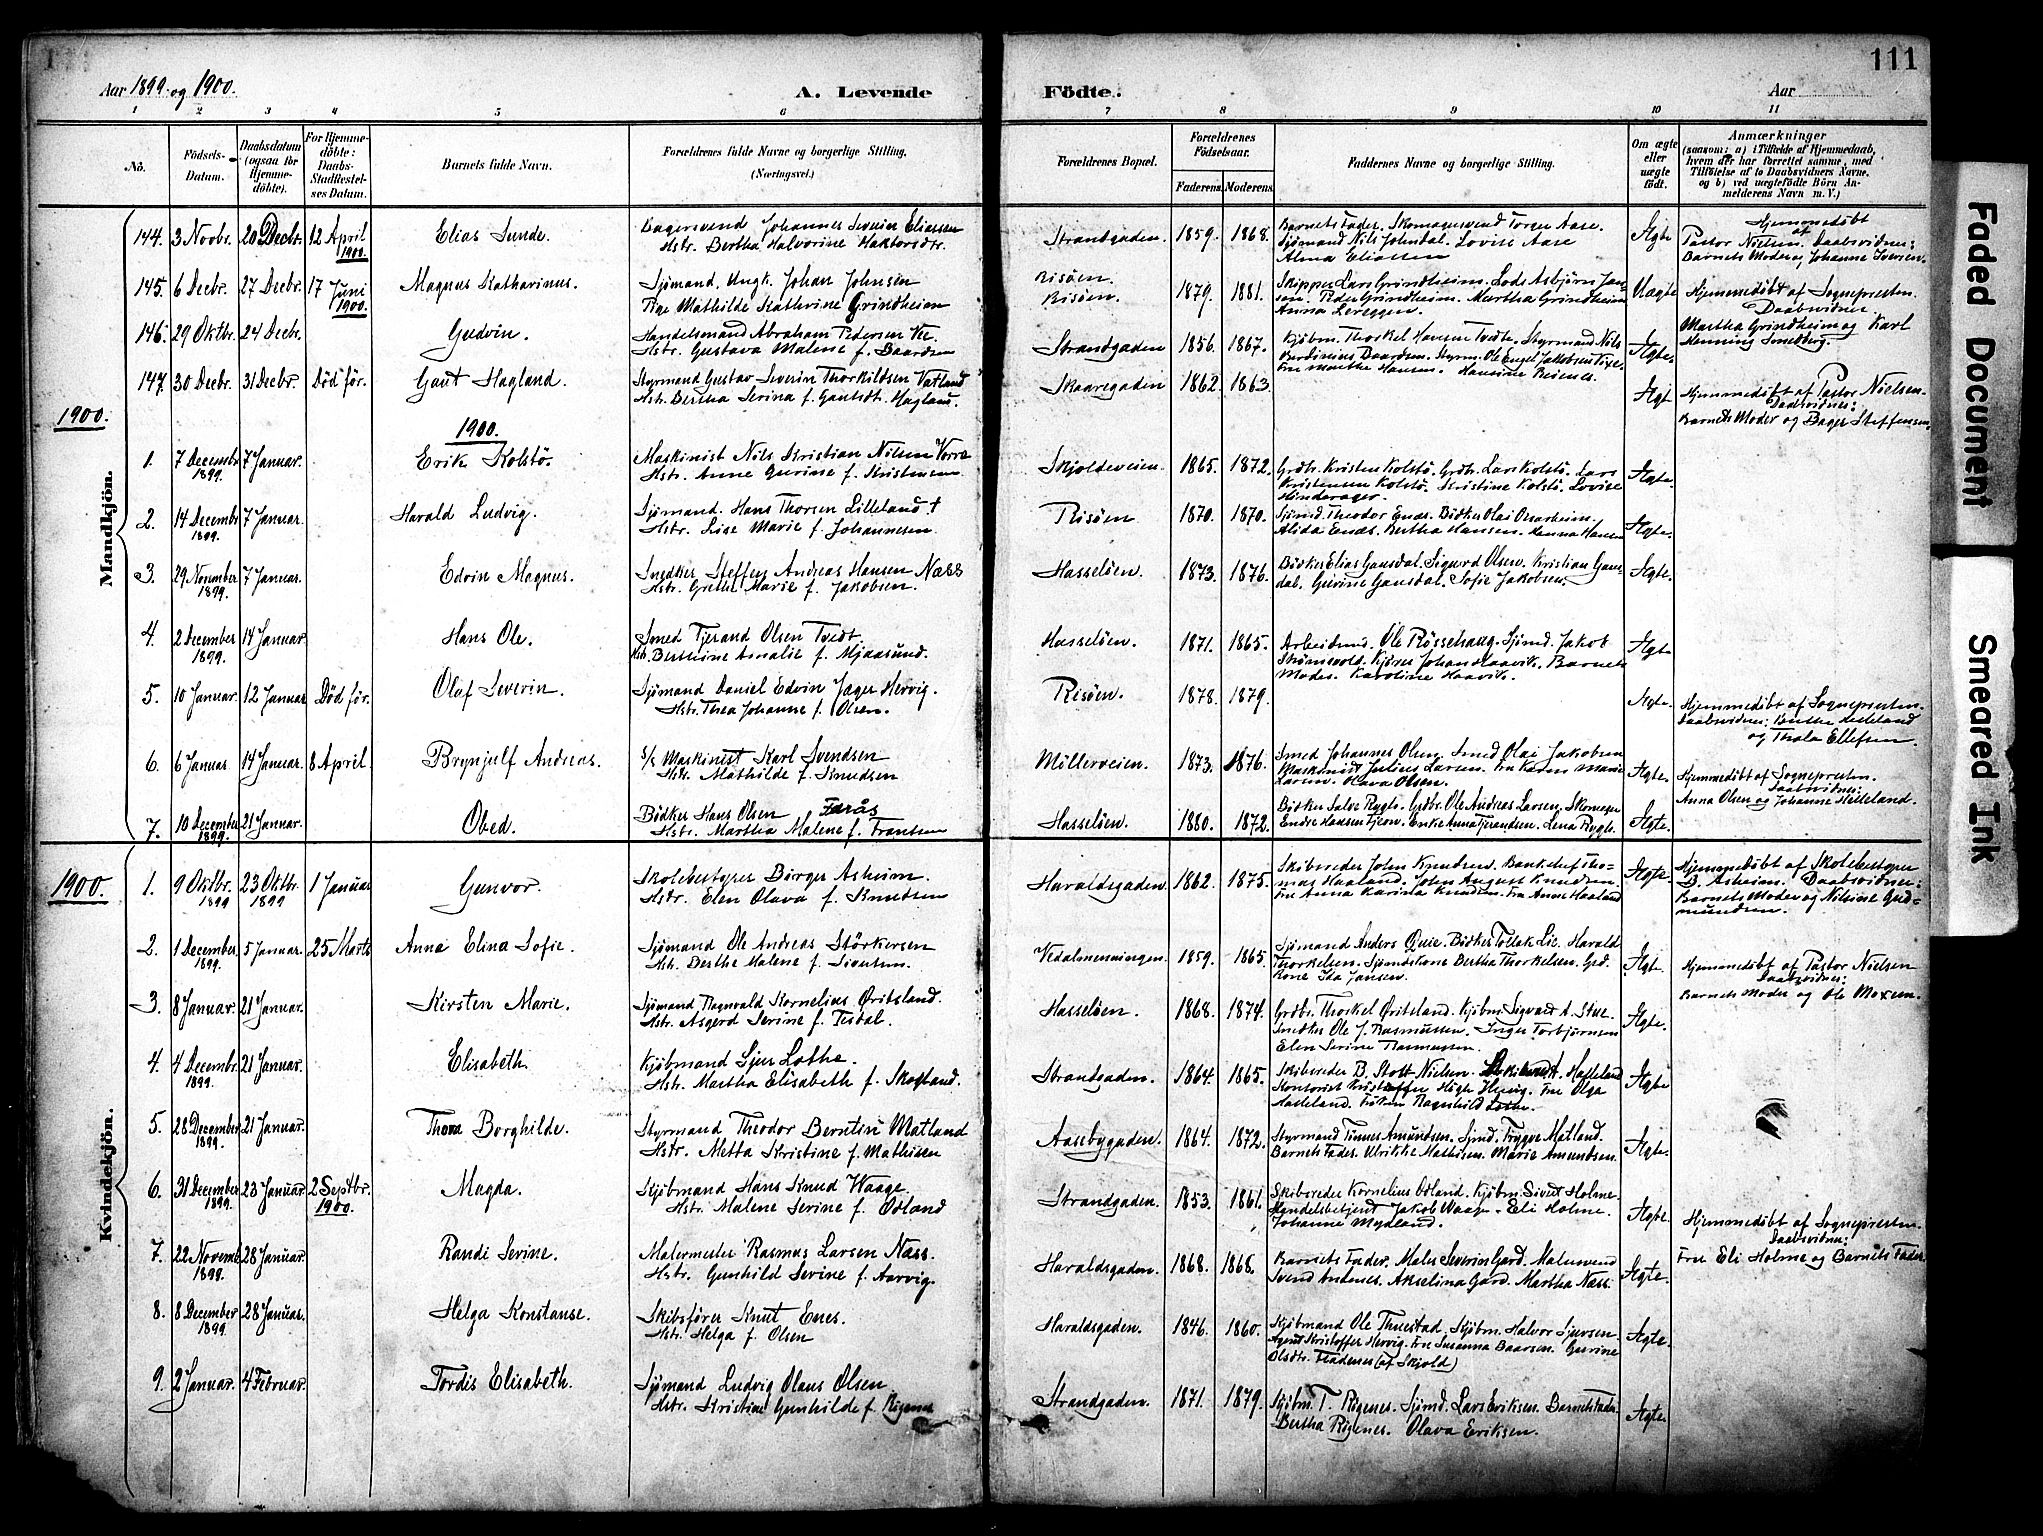 111
Aar 1899 og 1900.
A. Levende Födte.
Aar
1 2 3 4 5 6 7 8 9 10 11
No. Födsels-Datum. Daabsdatum (ogsaa for Hjemme-döbte). For Hjemme-döbte: Daabs-Stadfæstel-ses Datum. Barnets fulde Navn. Forældrenes fulde Navne og borgerlige Stilling. (Næringsvei.) Forældrenes Bopæl. Forældrenes Födselsaar. Faderens. Moderens. Faddernes Navne og borgerlige Stilling. Om ægte eller uægte födt. Anmærkninger (saasom: a) i Tilfælde af Hjemmedaab, hvem der har forrettet samme, med Tilföielse af to Daabsvidners Navne, og b) ved uægtefödte Börn An-melderens Navn m. V.)
Mandkjön.
144. 3 Novbr. 20 Decbr. 12 April 1900. Elias Sunde. Bagersvend Johannes Severin Eliassen
Hstr. Bertha Halvorine Haktorsdtr. Strandgaden. 1859. 1868. Barnets Fader. Skomagersvend Torger Aase.
Sjömand Nils Johndal. Lovise Aase
Alma Eliassen Ægte Hjemmedöbt
af
Pastor Nielsen. Daabsvidner:
Barnets Moder og Johanne Iversen.
145. 6 Decbr. 27 Decbr. 17 Juni 1900. Magnus Katharinus. Sjömand, Ungk. Johan Johnsen
Pige Mathilde Kathrine Grindheim Risöen.
Risöen. 1879. 1881. Skipper Lars Grindheim. Lods Asbjörn Jan-
sen. Peder Grindheim. Martha Grindheim
Anna Uægte Hjemmedöbt af Sognepresten.
Daabsvidner:
Martha Grindheim og Karl
Henning
146. 29 Oktbr. 24 Decbr. Gudvin. Handelsmand Abraham Pedersen Vee
Hstr. Gustava Malene f. Baardsen Strandgaden 1856. 1867. Kjöbm. Thorkel Haversen Tvedte. Styrmand Nils
Baardsen. Styrm. Ole Engel Jakobsen
Fru Marthe Hansen. Hansine Ægte.
147. 30 Decbr. 31 Decbr. Död för. Gaut Hagland. Styrmand Gustav Severin Thorkildsen Vatland
Hstr. Bertha Serina f. Gautsdt. Hagland. Skaaregaden 1862. 1863. Ægt Hjemmedöbt af Pastor Nielsen.
Daabsvidner:
Barnets Moder og Bager Steffensen.
1900.
1900.
1. 7 Decembr 1899. 7 Januar. Erik Kolstö. Maskinist Nils Kristian Nilsen Vorre
Hstr. Anne Gurine f. Kristensen Skjoldeveien. 1865. 1872. Grdbr. Kristen Kolstö. Grdbr. Lars Kolstö. Lars
Kristensen Kolstö. Kristine Kolstö. Lovise
Hinderager. Ægte.
2. 14 Decembr 1899. 7 Januar. Harald Ludvig. Sjömand. Hans Thorsen Lilleland †
Hstr. Lise Marie f. Johannesen Risöen 1870. 1870. Sjömd. Theodor Enes. Bödker Olai
Alida Enes. Bertha Hansen. Hanna Hansen Ægte.
3. 29 November 1899. 7 Januar. Edvin Magnus. Snedker Steffen Andreas Hansen Næss
Hstr. Grethe Marie f. Jakobsen. Hasselöen. 1873. 1876. Bödker Elias Gausdal. Sigurd Olsen. Kristian Gaus-
dal. Gurine Gausdal. Sofie Jakobsen. Ægte.
4. 2 December 1899. 14 Januar. Hans Ole. Smed Tjerand Olsen Tvedt.
Hstr. Berthine Amalie f. Mjaasund. Hasselöen. 1871. 1865. Arbeidsmd. Ole Rössehaug. Sjömd. Jakob
Strömsvold. Kjörer Johan Haavik. Barnets
Moder. Karoline Haavik. Ægt
5. 10 Januar. 12 Januar Död för. Olaf Severin. Sjömand Daniel Edvin Jager Hervig.
Hstr. Thea Johanne f. Olsen. Risöen. 1878. 1879. Ægte. Hjemmedöbt af Sognepresten.
Daabsvidner: Berthe
og Thala Ellefsen.
6. 6 Januar 14 Januar. 8 April. Brynjulf Andreas. S/s Maskinist Karl Svendsen
Hstr. Mathilde f. Knudsen Möllerveien. 1873. 1876. Smed Johannes Olsen. Smed Olai Jakobsen
Maskinist Julius Larsen. Fru Karen Marie
Larsen. Olava Olsen. Ægte. Hjemmedöbt af Sognepresten.
Daabsvidner:
Anna Olsen og Johanne Helleland.
7. 10 December 1899. 21 Januar. Obed. Bödker Hans Olsen Ferås
Hstr. Martha Malene f. Frantsen Hasselöen. 1880. 1872. Bödker Salve Rygh. Grdbr. Ole Andreas Larsen. Skomager
Endre Hansen Enke Anna Tjerandsen. Lena Rygh. Ægte.
Kvindekjön.
1900.
1. 9 Oktbr. 1899 23 Oktbr. 1899 1 Januar Gunvor. Skolebestyrer Börge Asheim.
Hstr. Elen Olava f. Knudsen Haraldsgaden. 1862. 1875. Skibsreder John Knudsen. Bankchef Tho-
mas Haaland. John August Knudsen.
Fru Anna Karina Knudsen. Fru Anne Haaland Ægte. Hjemmedöbt af Skolebestyrer
B. Asheim. Daabsvidner:
Barnets Moder og Nilsine Gud-
mundsen.
2. 1 December 1899. 5 Januar. 25 Marts Anna Elina Sofie. Sjömand Ole Andreas Störkersen
Hstr. Berthe Malene f. Sivertsen. Vedalmenningen. 1859. 1865. Sjömand Anders Quie. Bödker Tollak Lie. Harald
Thorkelsen. Sjömdskone Bertha Thorkelsen. Gift
Kone Ida Jansen. Ægt. Hjemmedöbt af Pastor Nielsen
Daabsvidner:
Barnets Moder og Ole
3. 8 Januar. 21 Januar. Kirsten Marie. Sjömand Ragnvald Kornelius Öritsland.
Hstr. Asgerd Serine f. Tisdal. Hasselöen. 1868. 1874. Grdbr. Thorkel Öritsland. Kjöbm. Sigvard A. Stue.
Snedker Ole J. Rasmussen. Inger Torbjörnsen
Elen Serine Rasmussen. Ægte.
4. 4 Decembr. 1899. 21 Januar. Elisabeth. Kjöbmand Sjur Lothe.
Hstr. Martha Elisabeth f. Skogland. Strandgaden. 1864. 1865. Skibsreder B. Stolt Nielsen. Skibsred. A. Helleland
Kontorist Kristoffer High Hervig. Fru Olga
Helleland. Fröken Ragnhild Lothe. Ægte
5. 28 December 1899. 21 Januar. Thora Borghilde. Styrmand Theodor Berntin Matland
Hstr. Metta Kristine f. Mathisen Aasebygaden. 1864. 1872. Styrmand Tönnes Amundsen. Sjmd. Trygve Matland.
Barnets Fader. Ulrikke Mathisen. Marie Amundsen. Ægte.
6. 31 December 1899. 23 Januar. 2 Septbr. 1900. Magda. Kjöbmand Hans Knud Waage.
Hstr. Malene Serine f. Ödland Strandgaden. 1853. 1861. Skibsreder Kornelius Ödland. Kjöbm. Sivert Holme.
Handelsbetjent Jakob Waage. Eli Holme.
Johanne Mydland. Ægte. Hjemmedöbt af Sognepresten.
Daabsvidner:
Fru Eli Holme og Barnets Fader
7. 22 Novemb. 1899. 28 Januar. Randi Serine. Malermester Rasmus Larsen Næss.
Hstr. Gunhild Serine f. Aarvig. Haraldsgaden. 1868. 1868. Barnets Fader. Maler Severin Gard. Malersvend
Svend Andenes. Akselina Gard. Martha Næss. Ægte.
8. 8 December 1899. 28 Januar. Helga Konstanse. Skibsförer Knut Enes.
Hstr. Helga f. Olsen Haraldsgaden. 1846. 1860. Kjöbmand Ole Thuestad. Kjöbm. Halvor Sjursen
Agent Kristoffer Hervig. Fru Susanna Baarsen. Gurine
Olsdtr. Fladenes (af Skjold) Ægte.
9. 2 Januar. 4 Februar. Tordis Elisabeth. Sjömand Ludvig Olaus Olsen
Hstr. Kristine Gunhilde f. Rigenes Strandgaden. 1871. 1879. Kjöbm. T. Rigenes. Sjömd. Lars Eriksen. Barnets Fader.
Bertha Rigenes. Olava Eriksen. Ægte.
Faded Document
Smeared Ink